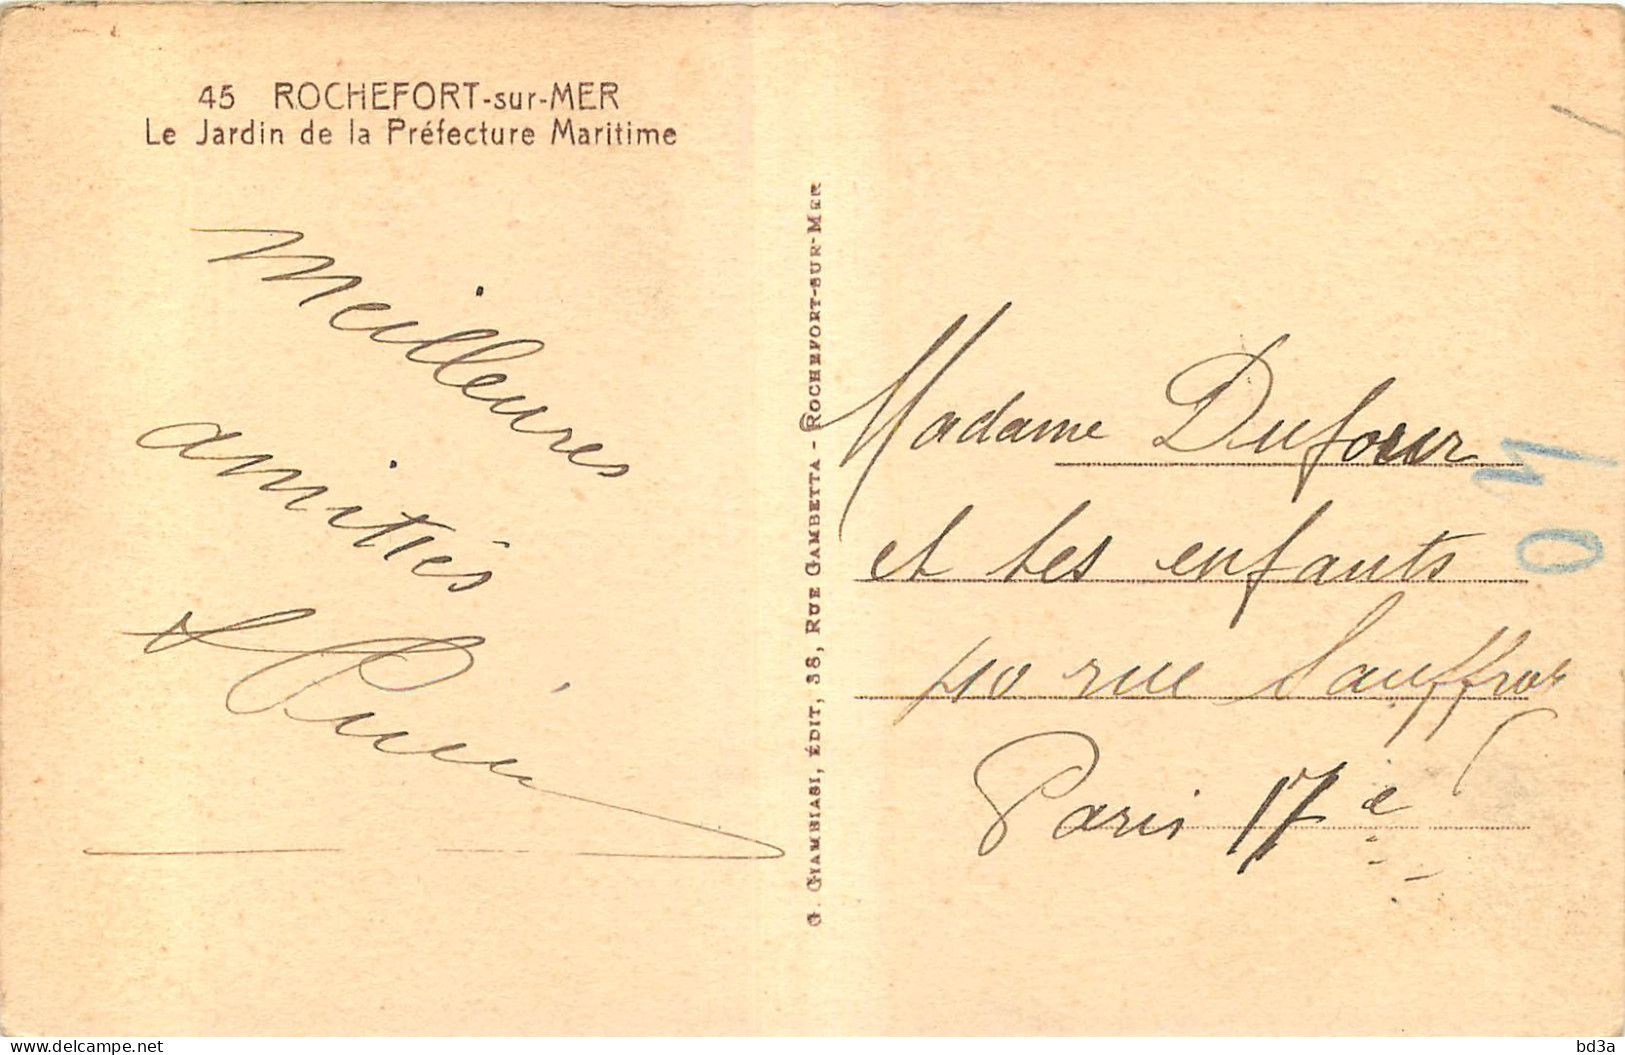 45 ROCHEFORT-sur-MER
Le Jardin de la Préfecture Maritime
Meilleures
amitiés
G. GIAMBIASI, ÉDIT, 38, RUE GAMBETTA - ROCHEFORT-SUR-MER
Madame Dufour
et ses enfants
rue Sauffroy
Paris 17e
delcampe.net
bd3a